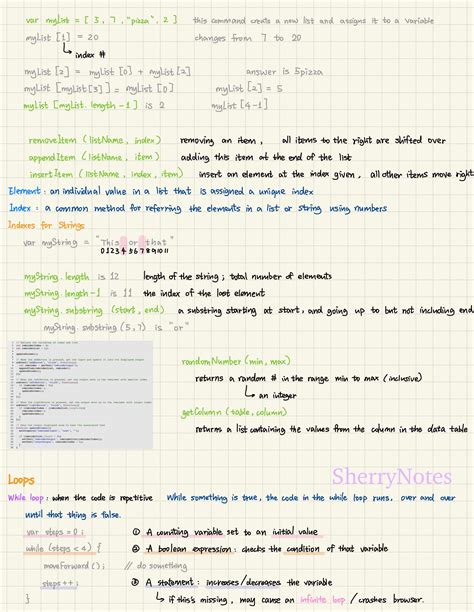 var myList = [ 3 , 7 , "pizza" , 2 ] this command creates a new list and assigns it to a variable
myList [1] = 20 changes from 7 to 20
↳ index #
myList [2] = myList [0] + myList [2] answer is 5pizza
myList [myList[3]] = myList [0] myList [2] = 5
myList [myList. length -1 ] is 2 myList [4-1]
removeItem ( listName , index ) removing an item , all items to the right are shifted over
appendItem ( listName , item ) adding this item at the end of the list
insertItem ( listName , index , item ) insert an element at the index given , all other items move right
Element : an individual value in a list that is assigned a unique index
Index : a common method for referring the elements in a list or string using numbers
Indexes for Strings
var myString = "This or that"
01234567891011
myString. length is 12 length of the string ; total number of elements
myString. length -1 is 11 the index of the last element
myString. substring (start , end) a substring starting at start, and going up to but not including end
myString. substring (5,7) is "or"
randomNumber (min, max)
returns a random # in the range min to max (inclusive)
↳ an integer
getColumn (table, column)
returns a list containing the values from the column in the data table
Loops
SherryNotes
While loop : when the code is repetitive While something is true, the code in the while loop runs, over and over
until that thing is false.
var steps = 0 ; ① A counting variable set to an initial value
while (steps < 4) { ② A boolean expression : checks the condition of that variable
moveForward ( ) ; // do something
steps ++ ; ③ A statement : increases/decreases the variable
} ↳ if this's missing, may cause an infinite loop / crashes browser.